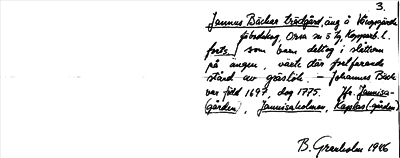 3.
Jannus Bäckar trädgård, äng å Vångsgärde
fäbodskog, Orsa sn 5 ty, Kopparb. l.
forts. som barn deltog i slåttern
på ängen, växte där fortfarande
stånd av gräslök. – Johannes Bäck
var född 1697, dog 1775. Jfr. Jannisa-
(gården), Jannisaholmen, Kapelas (gården)
B. Granholm 1946